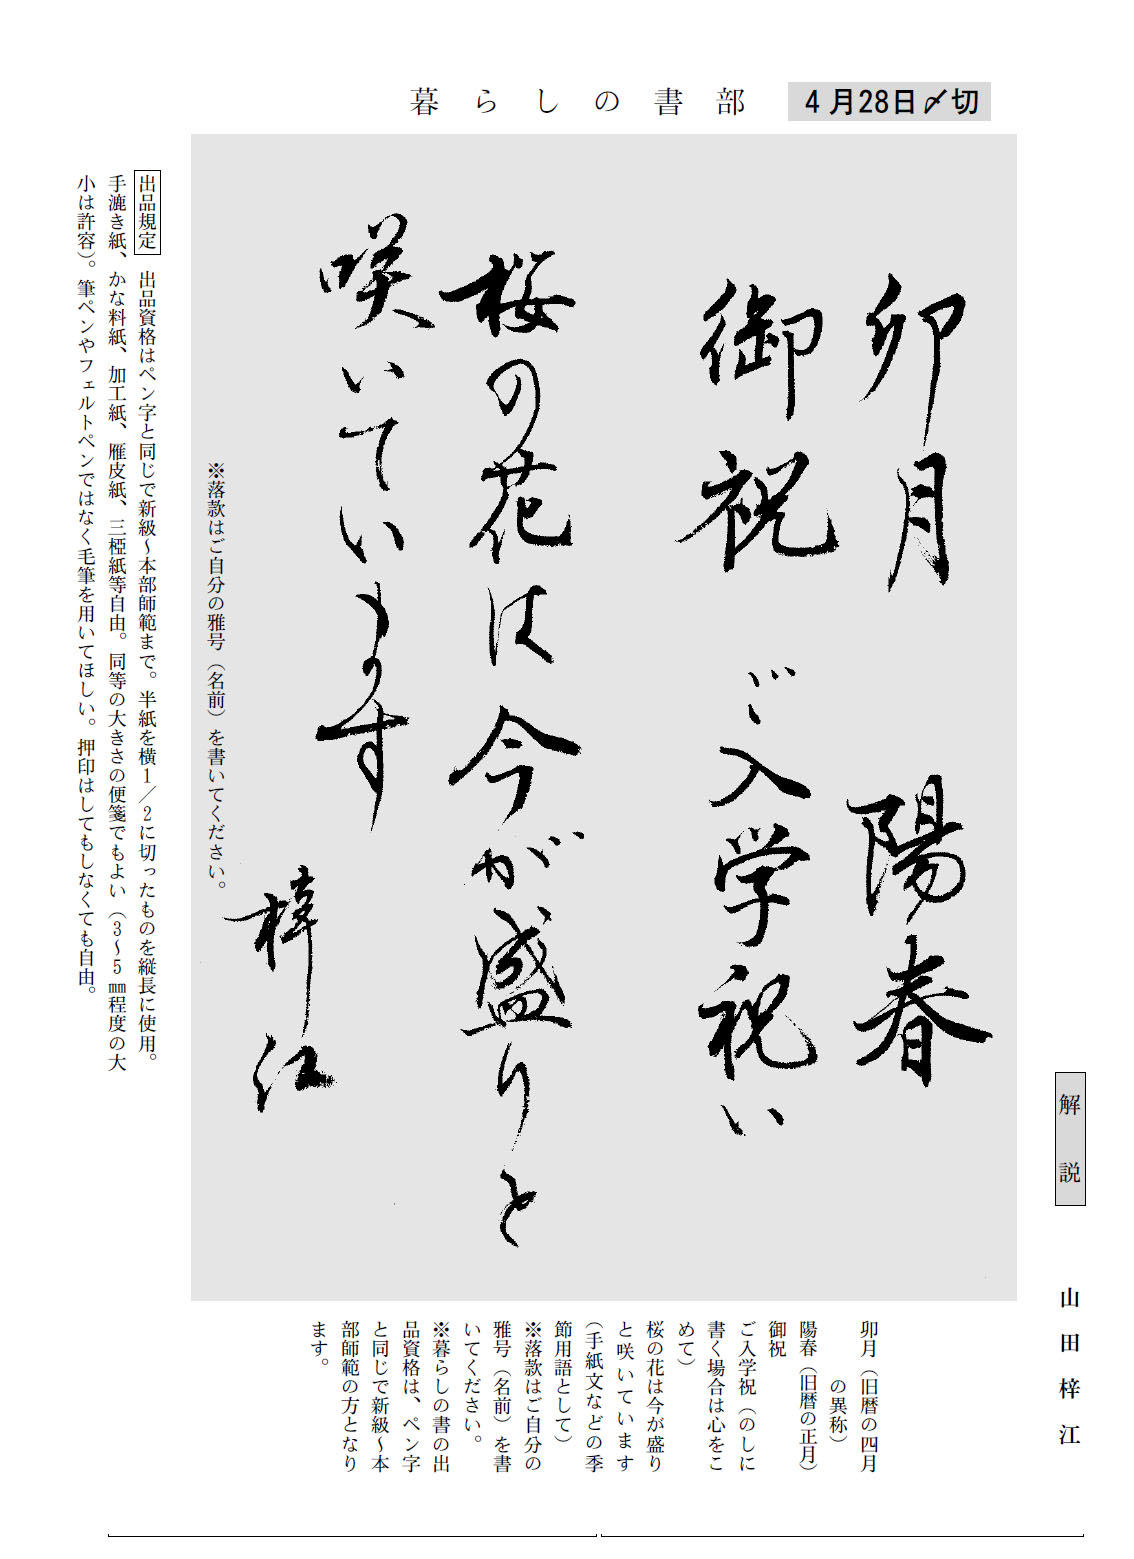 暮らしの書部
4月28日〆切
解説
山田梓江
卯月 陽春
御祝 ご入学祝い
桜の花は今が盛りと
咲いています
梓江
※落款はご自分の雅号（名前）を書いてください。
出品規定 出品資格はペン字と同じで新級～本部師範まで。半紙を横1／2に切ったものを縦長に使用。
手漉き紙、かな料紙、加工紙、雁皮紙、三椏紙等自由。同等の大きさの便箋でもよい（3～5㎜程度の大
小は許容）。筆ペンやフェルトペンではなく毛筆を用いてほしい。押印はしてもしなくても自由。
卯月（旧暦の四月
の異称）
陽春（旧暦の正月）
御祝
ご入学祝（のしに
書く場合は心をこ
めて）
桜の花は今が盛り
と咲いています
（手紙文などの季
節用語として）
※落款はご自分の
雅号（名前）を書
いてください。
※暮らしの書の出
品資格は、ペン字
と同じで新級～本
部師範の方となり
ます。